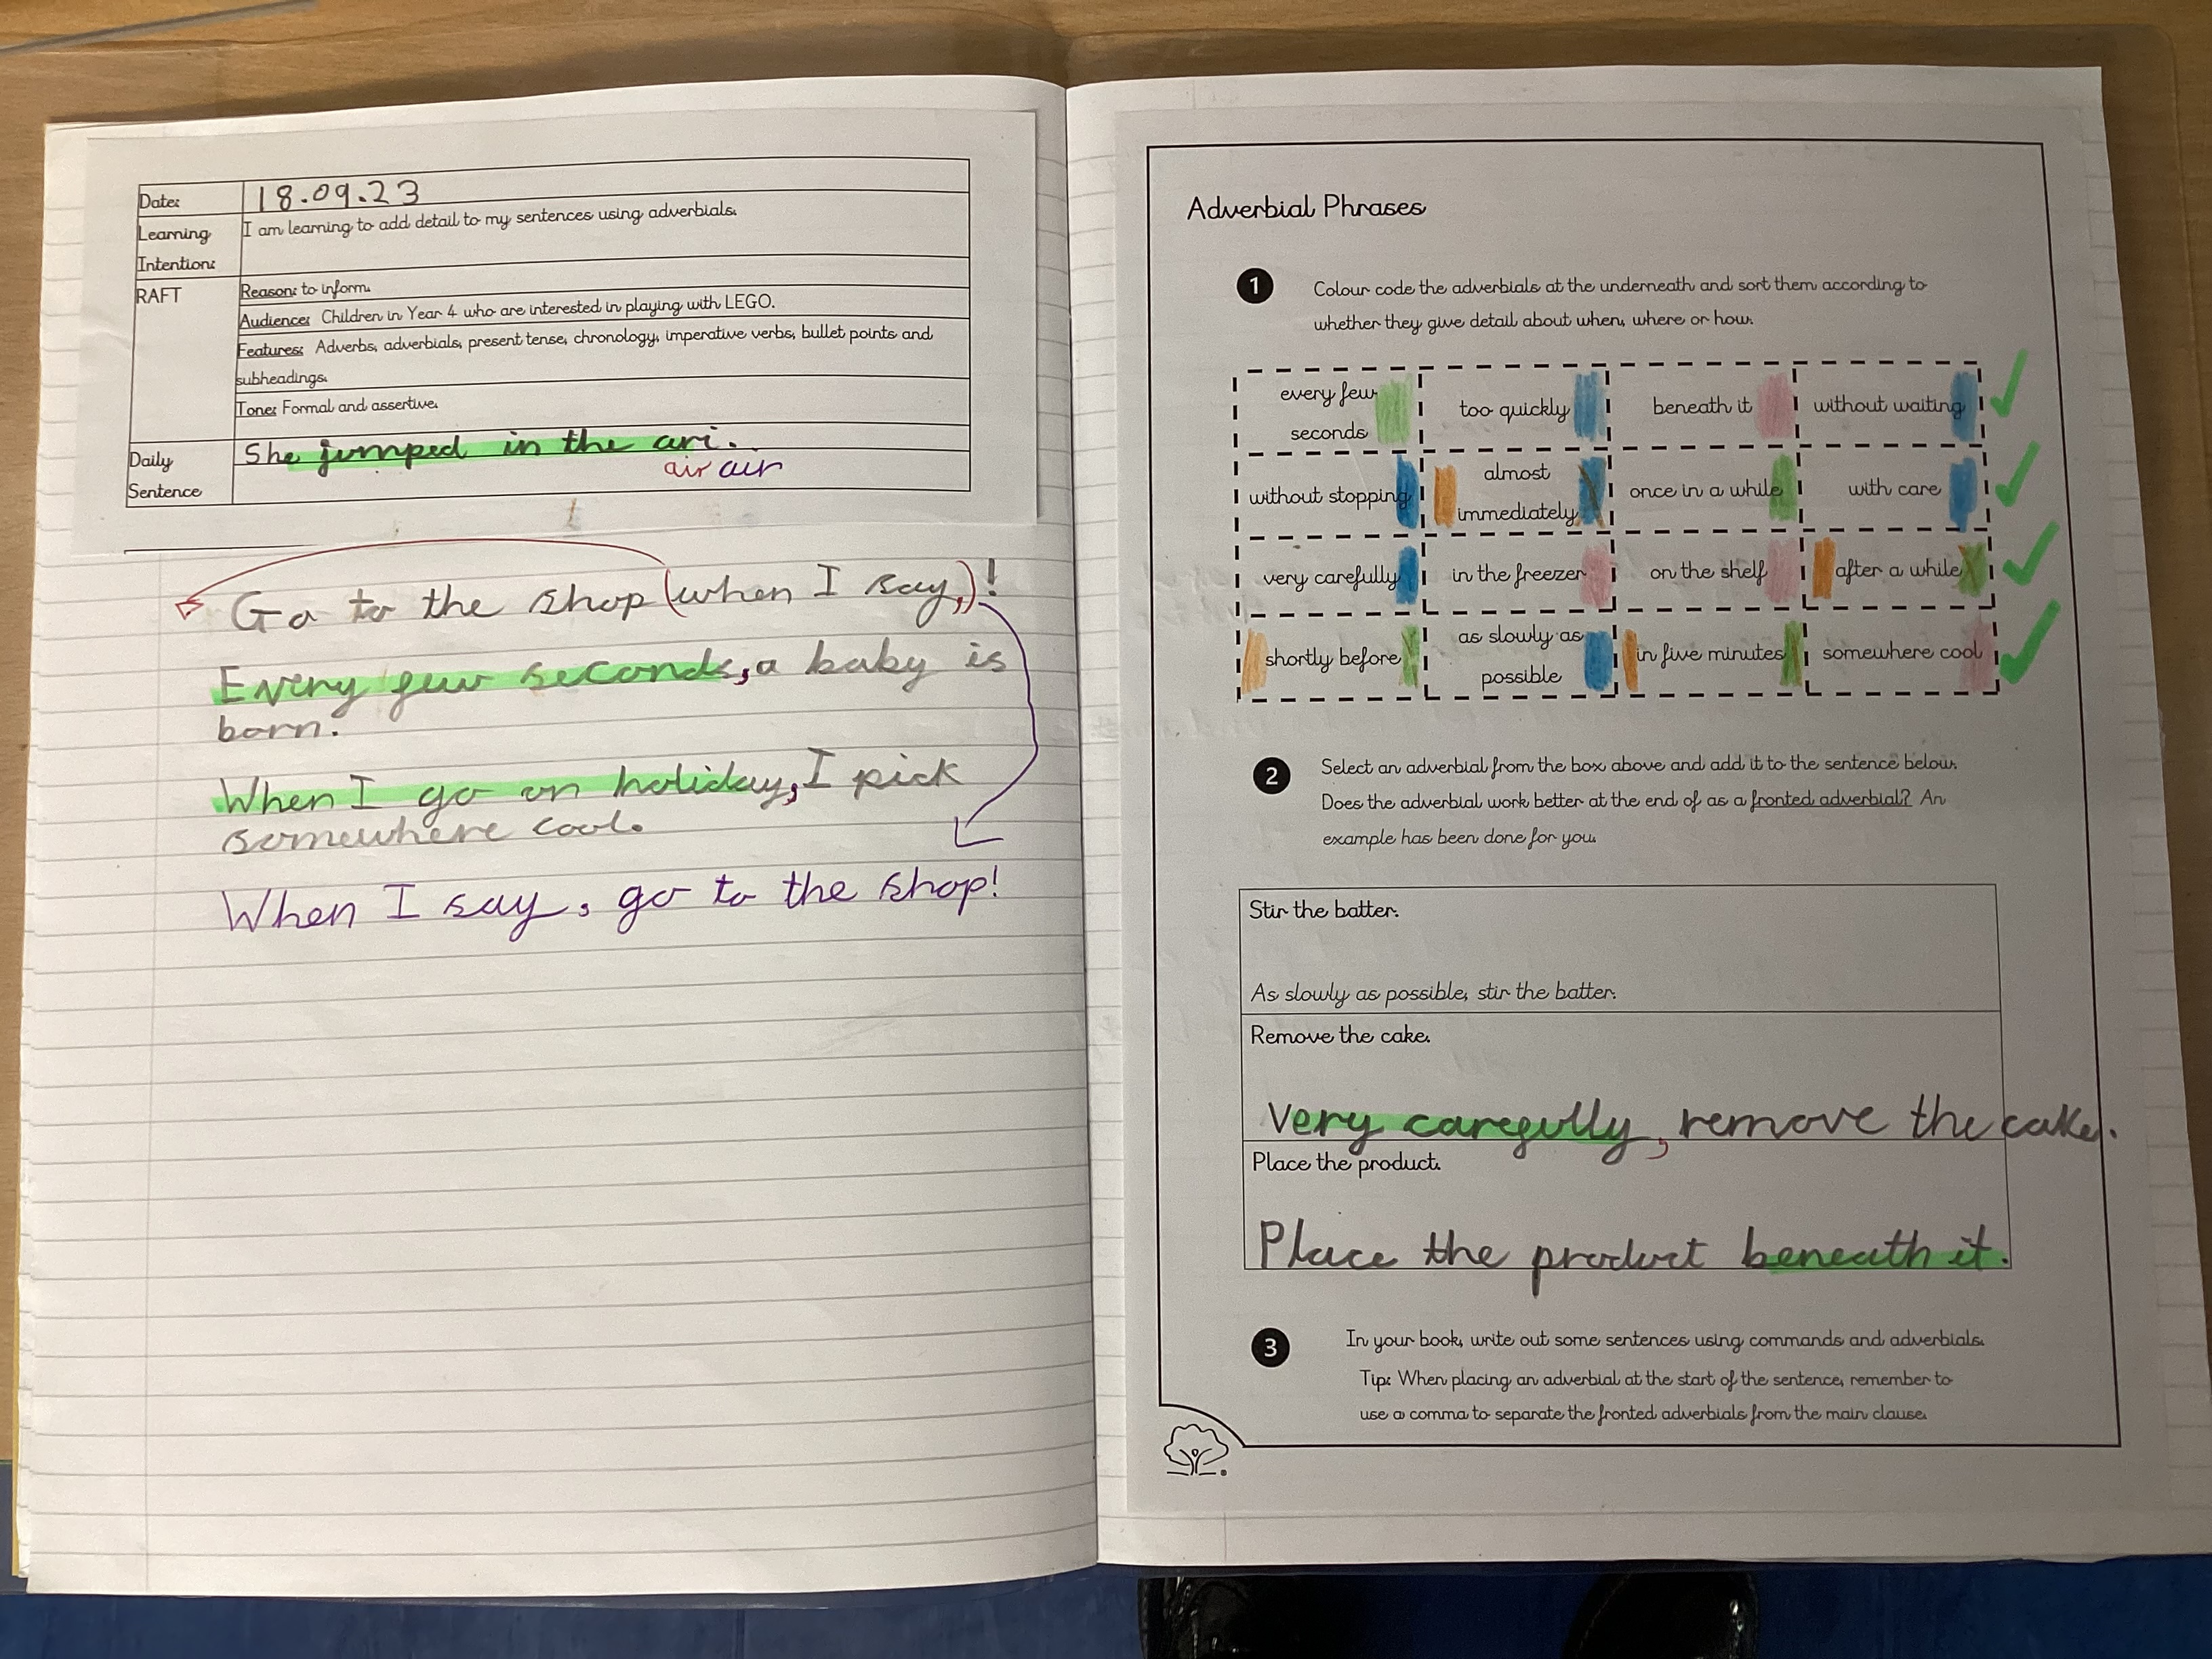 Date: 18.09.23
Learning Intention: I am learning to add detail to my sentences using adverbials.
RAFT
Reason: to inform.
Audience: Children in Year 4 who are interested in playing with LEGO.
Features: Adverbs, adverbials, present tense, chronology, imperative verbs, bullet points and
subheadings.
Tone: Formal and assertive.
Daily Sentence
She jumped in the ari.
air air
Go to the shop (when I say,)!
Every few seconds, a baby is
born.
When I go on holiday, I pick
somewhere cool.
When I say, go to the shop!
Adverbial Phrases
1 Colour code the adverbials at the underneath and sort them according to
whether they give detail about when, where or how.
every few seconds
too quickly
beneath it
without waiting
without stopping
almost immediately
once in a while
with care
very carefully
in the freezer
on the shelf
after a while
shortly before
as slowly as possible
in five minutes
somewhere cool
2 Select an adverbial from the box above and add it to the sentence below.
Does the adverbial work better at the end of as a fronted adverbial? An
example has been done for you.
Stir the batter.
As slowly as possible, stir the batter.
Remove the cake.
Very carefully, remove the cake.
Place the product.
Place the product beneath it.
3 In your book, write out some sentences using commands and adverbials.
Tip: When placing an adverbial at the start of the sentence, remember to
use a comma to separate the fronted adverbials from the main clause.